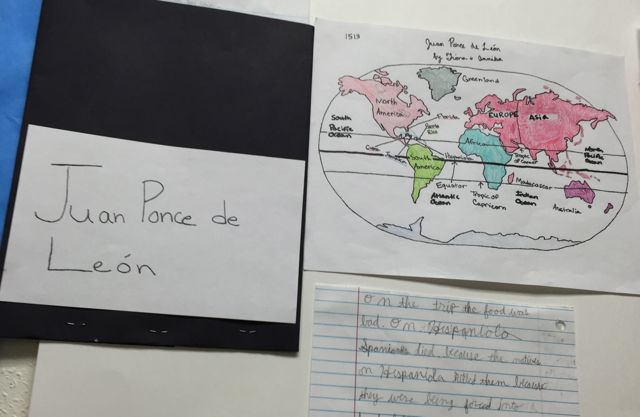 Juan Ponce de
León
1513
Juan Ponce de León
Greenland
North
America
EUROPE
Asia
South
Pacific
Ocean
Florida
Puerto
Rico
Cuba
Africa
North
Pacific
Ocean
South
America
Hispaniola
Tropic
of Cancer
Equator
Madagascar
Atlantic
Ocean
Tropic of
Capricorn
Indian
Ocean
Australia
on the trip the food was
bad. On Hispaniola
Spaniards died because the natives
on Hispaniola killed them because
they were being forced into